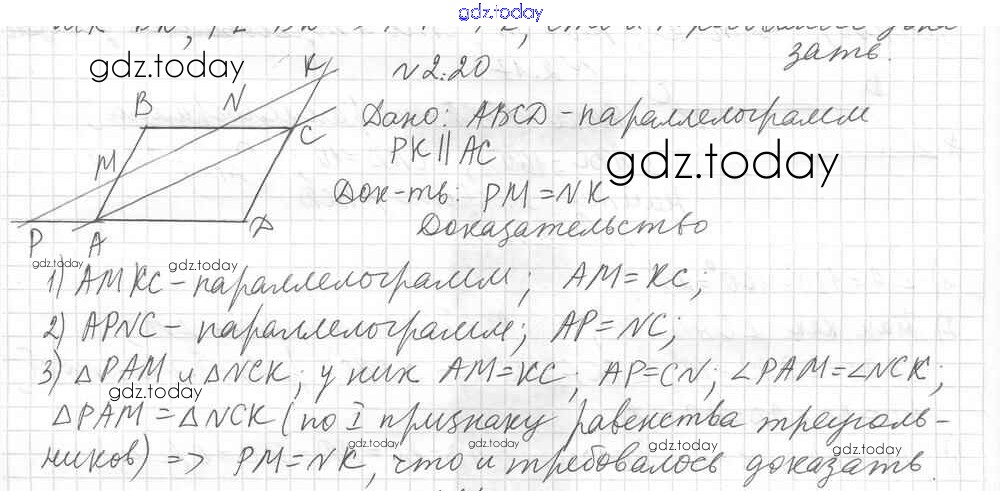 gdz.today
зать.
gdz.today
К
N 2.20
B
N
Дано: ABCD - параллелограмм
C
PK || AC
gdz.today
M
Док-ть: PM = NK
Доказательство
P
A
D
gdz.today
gdz.today
1) AMKC - параллелограмм; AM = KC;
2) APNC - параллелограмм; AP = NC;
3) △PAM и △NCK; у них AM = KC; AP = CN; ∠PAM = ∠NCK;
gdz.today
△PAM = △NCK (по I признаку равенства треуголь-
ников) => PM = NK, что и требовалось доказать.
gdz.today
gdz.today
gdz.today